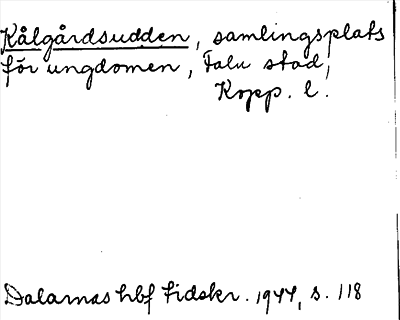 Kålgårdsudden, samlingsplats
för ungdomen, Falu stad,
Kopp. l.
Dalarnas hbf tidskr. 1944, s. 118